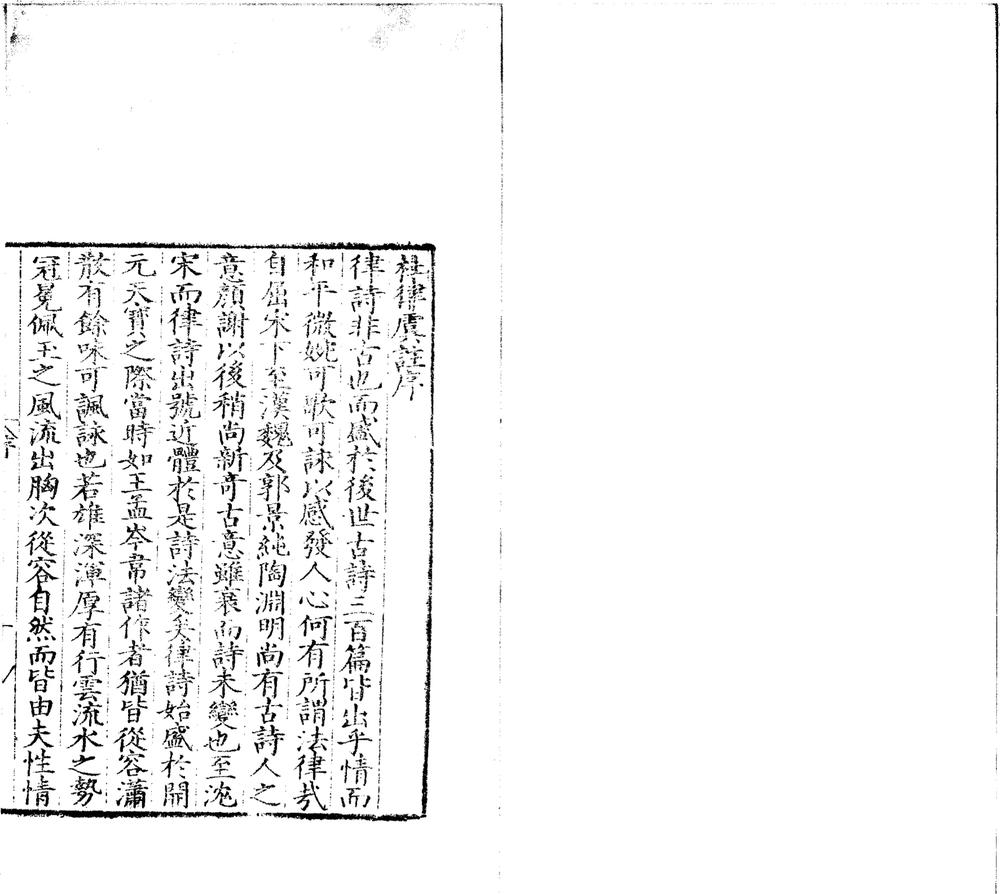 杜律虞註序
律詩非古也而盛於後世古詩三百篇皆出乎情而
和平微婉可歌可詠以感發人心何有所謂法律㢤
自屈宋下至漢魏及郭景純陶淵明尚有古詩人之
意顏謝以後稍尚新竒古意雖衰而詩未變也至沈
宋而律詩出號近體於是詩法變矣律詩始盛於開
元天寶之際當時如王孟岑韋諸作者猶皆從容瀟
散有餘味可諷詠也若雄深渾厚有行雲流水之勢
冠冕佩玉之風流出胸次從容自然而皆由夫性情